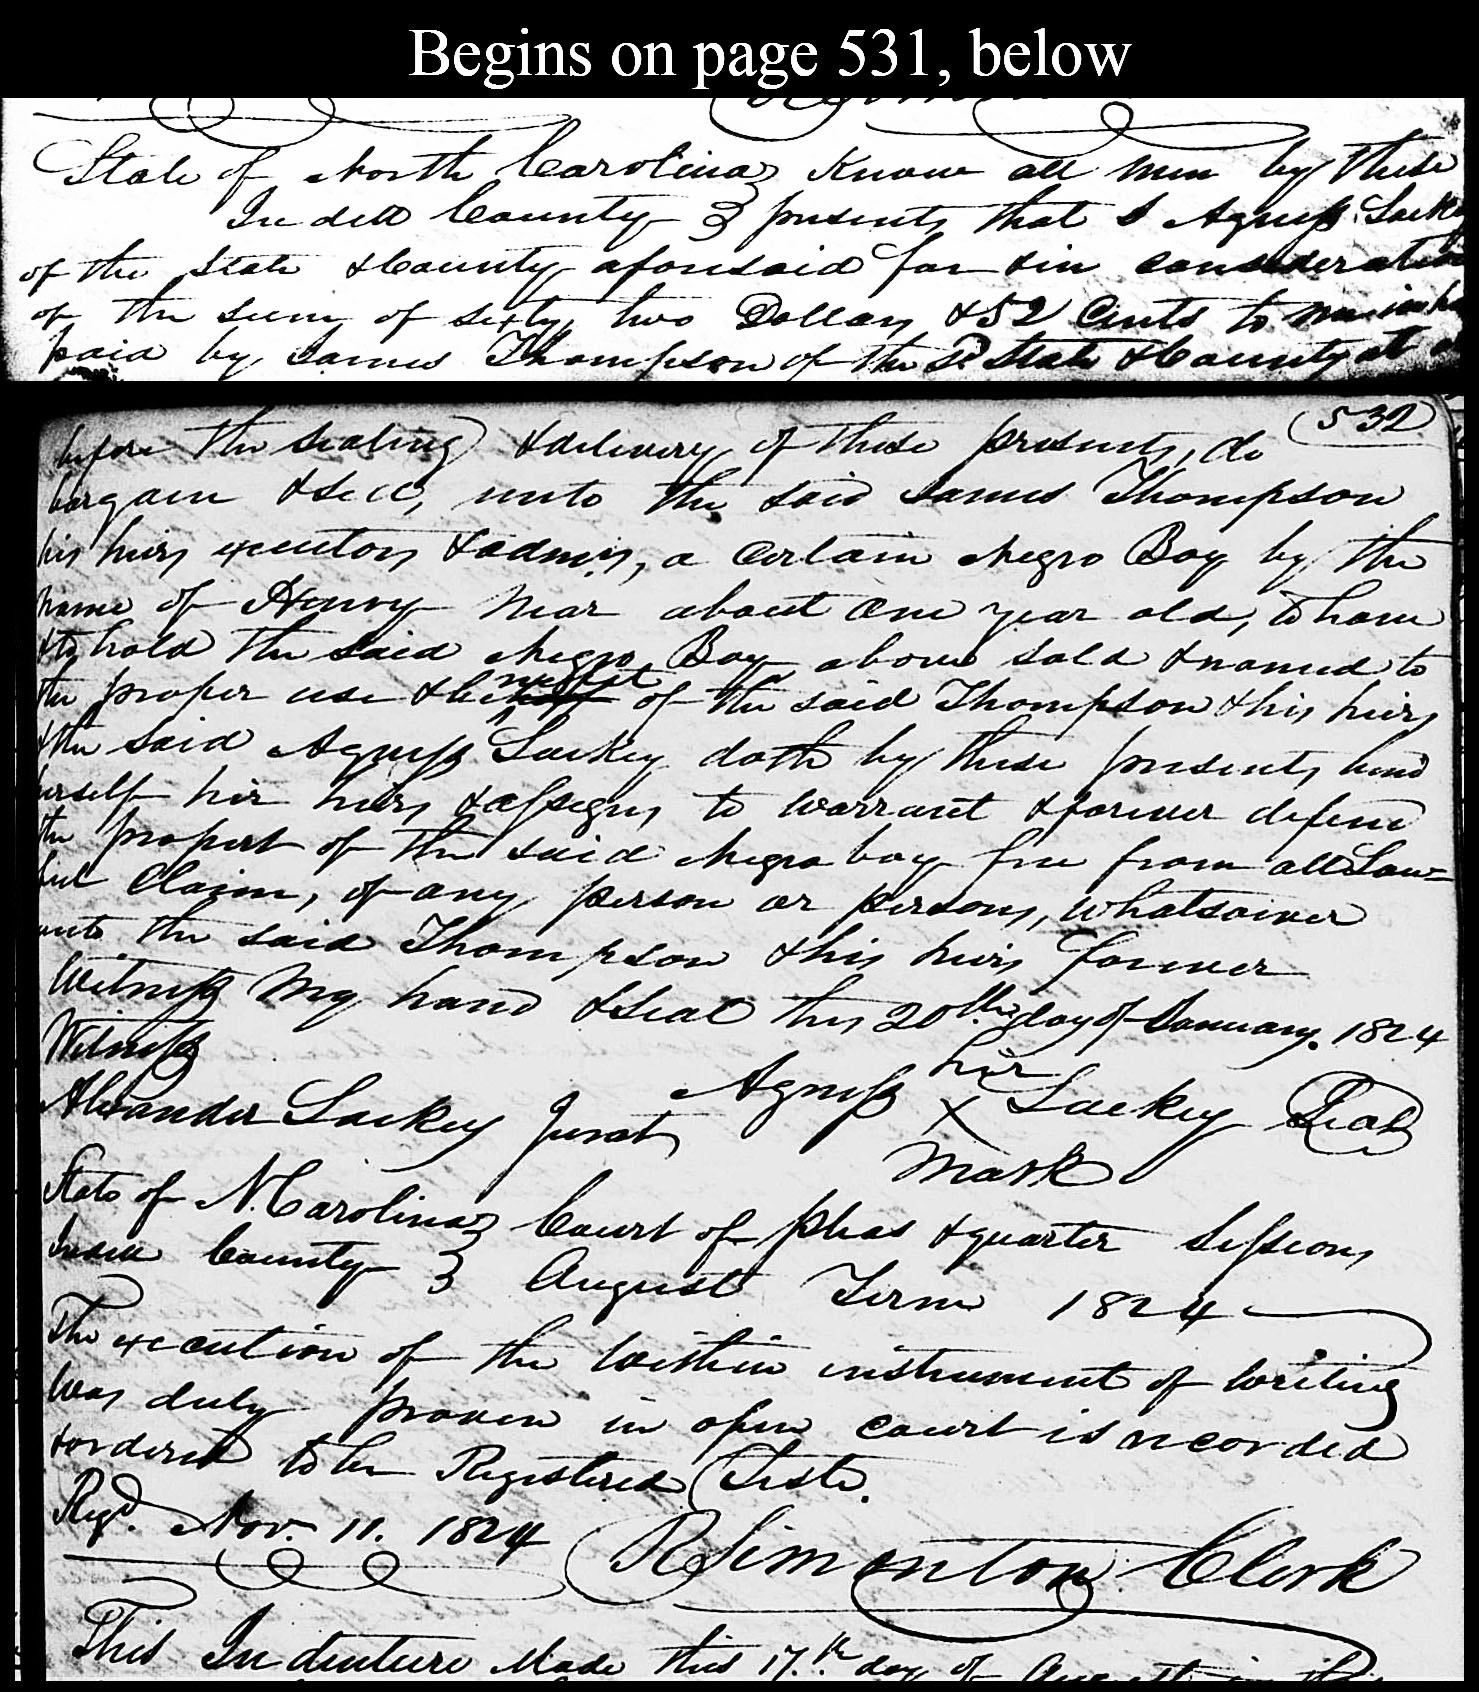 Begins on page 531, below
State of North Carolina } Know all men by these
Iredell County } presents that I Agness Lackey
of the State & County aforesaid for & in consideration
of the sum of sixty two Dollars & 52 Cents to me in
paid by James Thompson of the sd State & County at
532
before the sealing & delivery of these presents, do
bargain & sell, unto the said James Thompson
his heirs executors & admrs, a certain Negro Boy by the
name of Henry near about one year old, to have
& to hold the said Negro Boy above sold & named to
the proper use & of the said Thompson & his heirs
& the said Agness Lackey doth by these presents bind
herself her heirs & assigns to warrant & forever defend
the propert of the said Negro boy free from all Law=
ful Claim, of any person or persons, whatsoever
unto the said Thompson & his heirs forever
Witness My hand & seal this 20th day of January. 1824
Witness
her
Alexander Lackey Jurat Agness X Lackey Seal
Mark
State of N. Carolina } Court of pleas & quarter Sessions
Iredell County } August Term 1824
The execution of the within instrument of writing
was duly proven in open court is recorded
& ordered to be Registered Teste.
Regd. Nov. 11. 1824 R Simonton Clerk
This Indenture Made this 17.th day of August in the